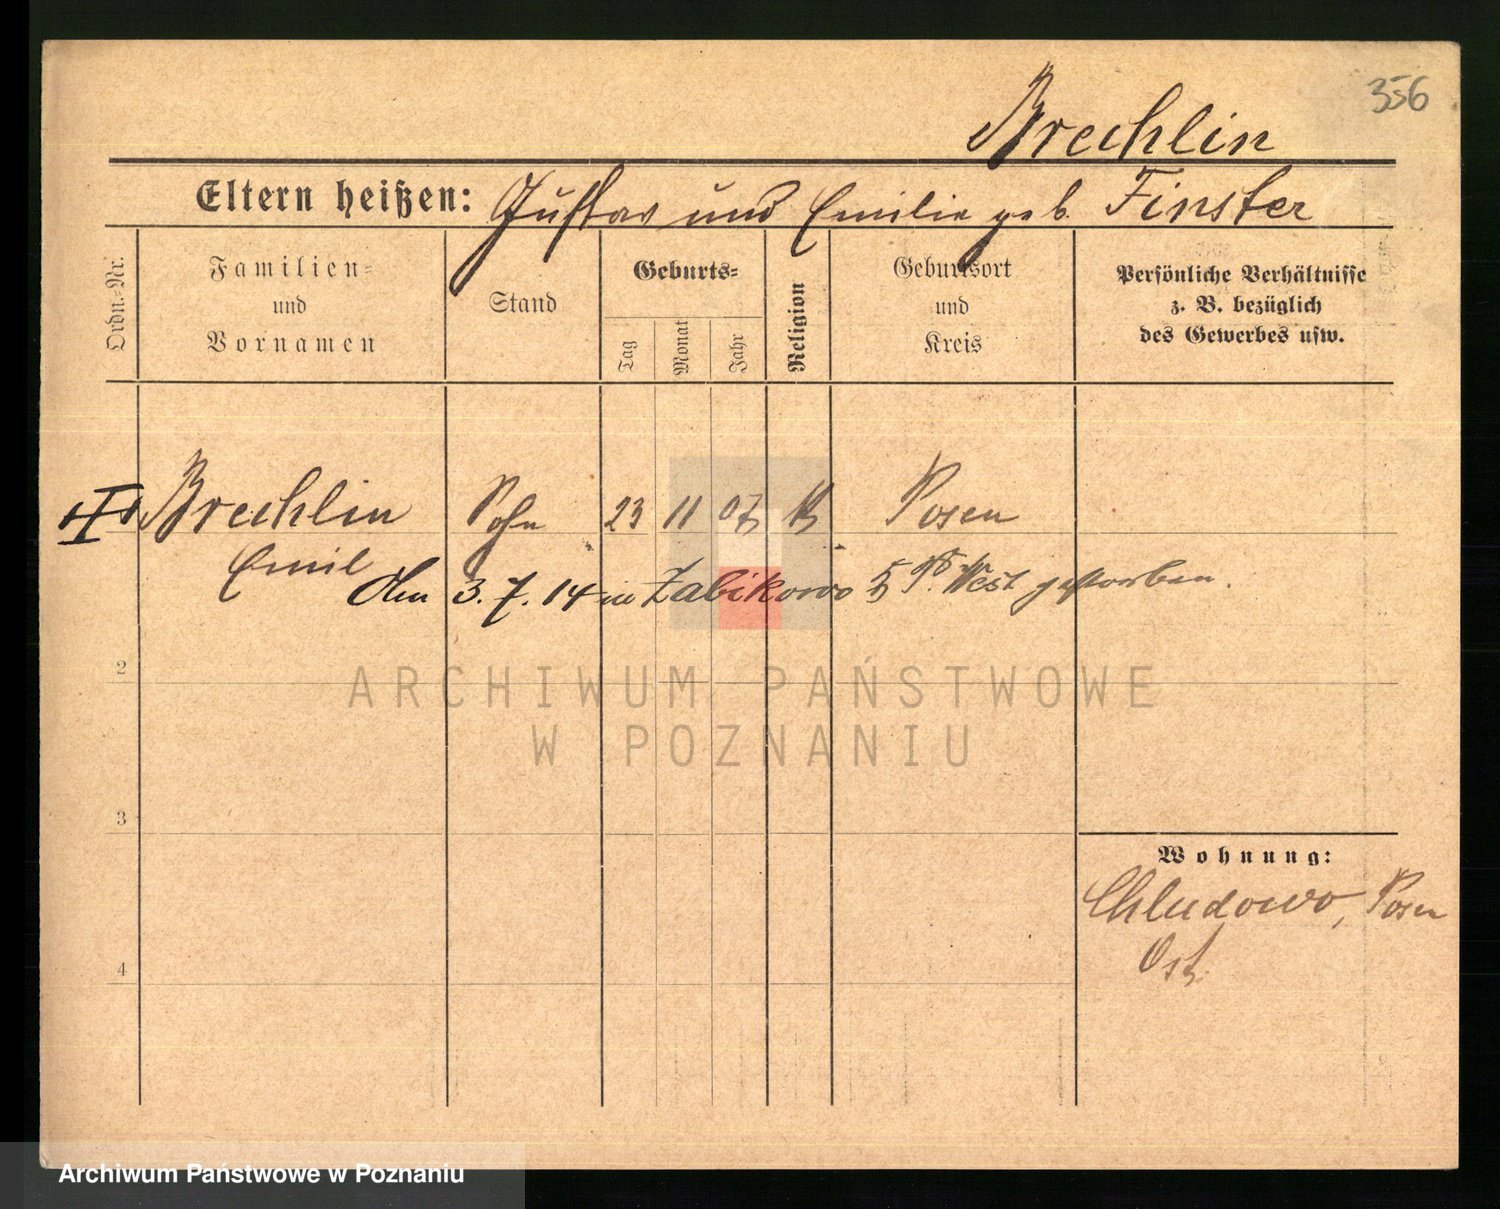 356
Brechlin
Eltern heißen: Gustav und Emilie geb. Finster
Ordn.-Nr.
Familien-
und
Vornamen
Stand
Geburts-
Tag
Monat
Jahr
Religion
Geburtsort
und
Kreis
Persönliche Verhältnisse
z. B. bezüglich
des Gewerbes usw.
Brechlin Sohn 23 11 07 Posen
Emil
Am 3.7.14 in Zabikowo West gestorben.
2
ARCHIWUM PAŃSTWOWE
W POZNANIU
3
Wohnung:
Chludowo, Posen
Ost.
4
Archiwum Państwowe w Poznaniu